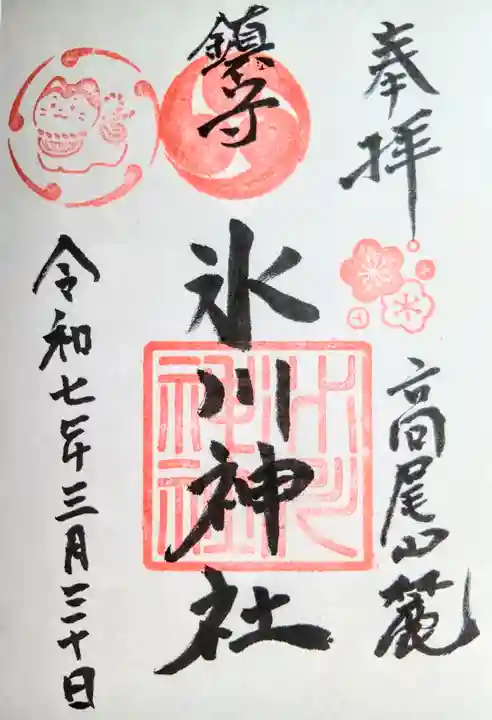 奉拝
高尾山麓
鎮守
氷川神社
氷川神社
令和七年三月三十日